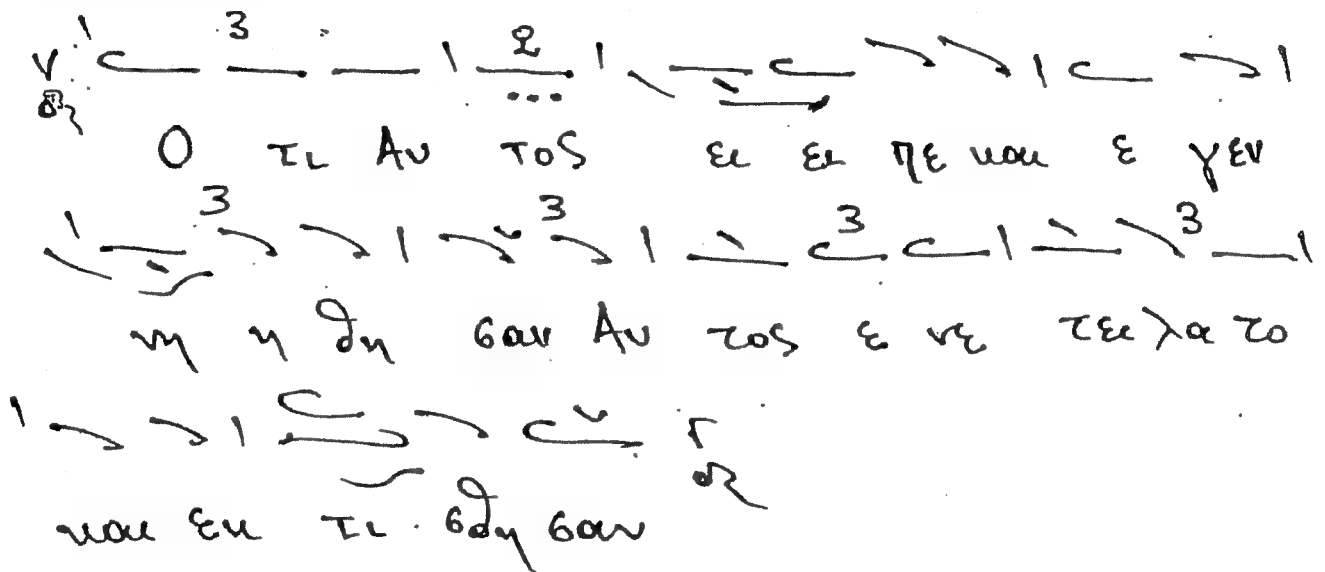 3 2
Ο τι Αυ τος ει ει πε και ε γεν
3 3 3 3
νη η θη σαν Αυ τος ε νε τει λα το
και εκ τι σθη σαν